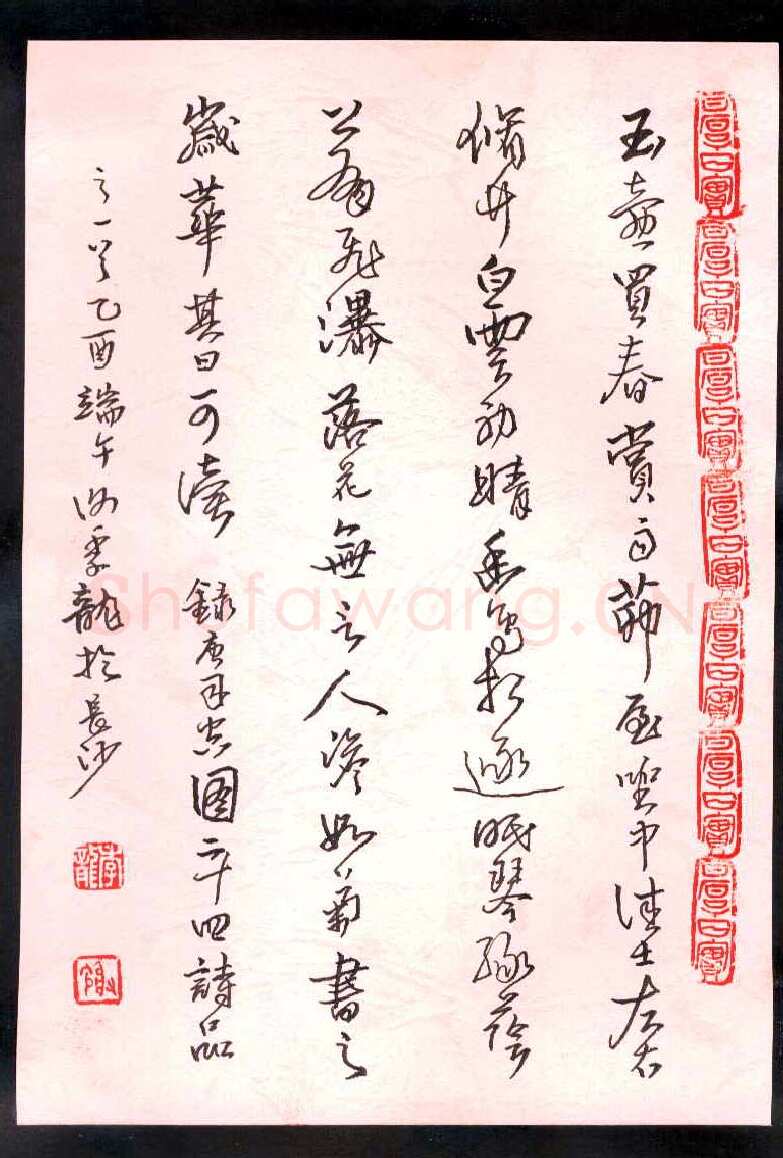 玉壺買春賞雨茆屋坐中佳士左右
脩竹白雲初晴幽鳥相逐眠琴綠蔭
上有飛瀑落花無言人澹如菊書之
歲華其曰可讀 錄唐司空圖二十四詩品
之一 乙酉端午 龍於長沙
Shufawang.CN